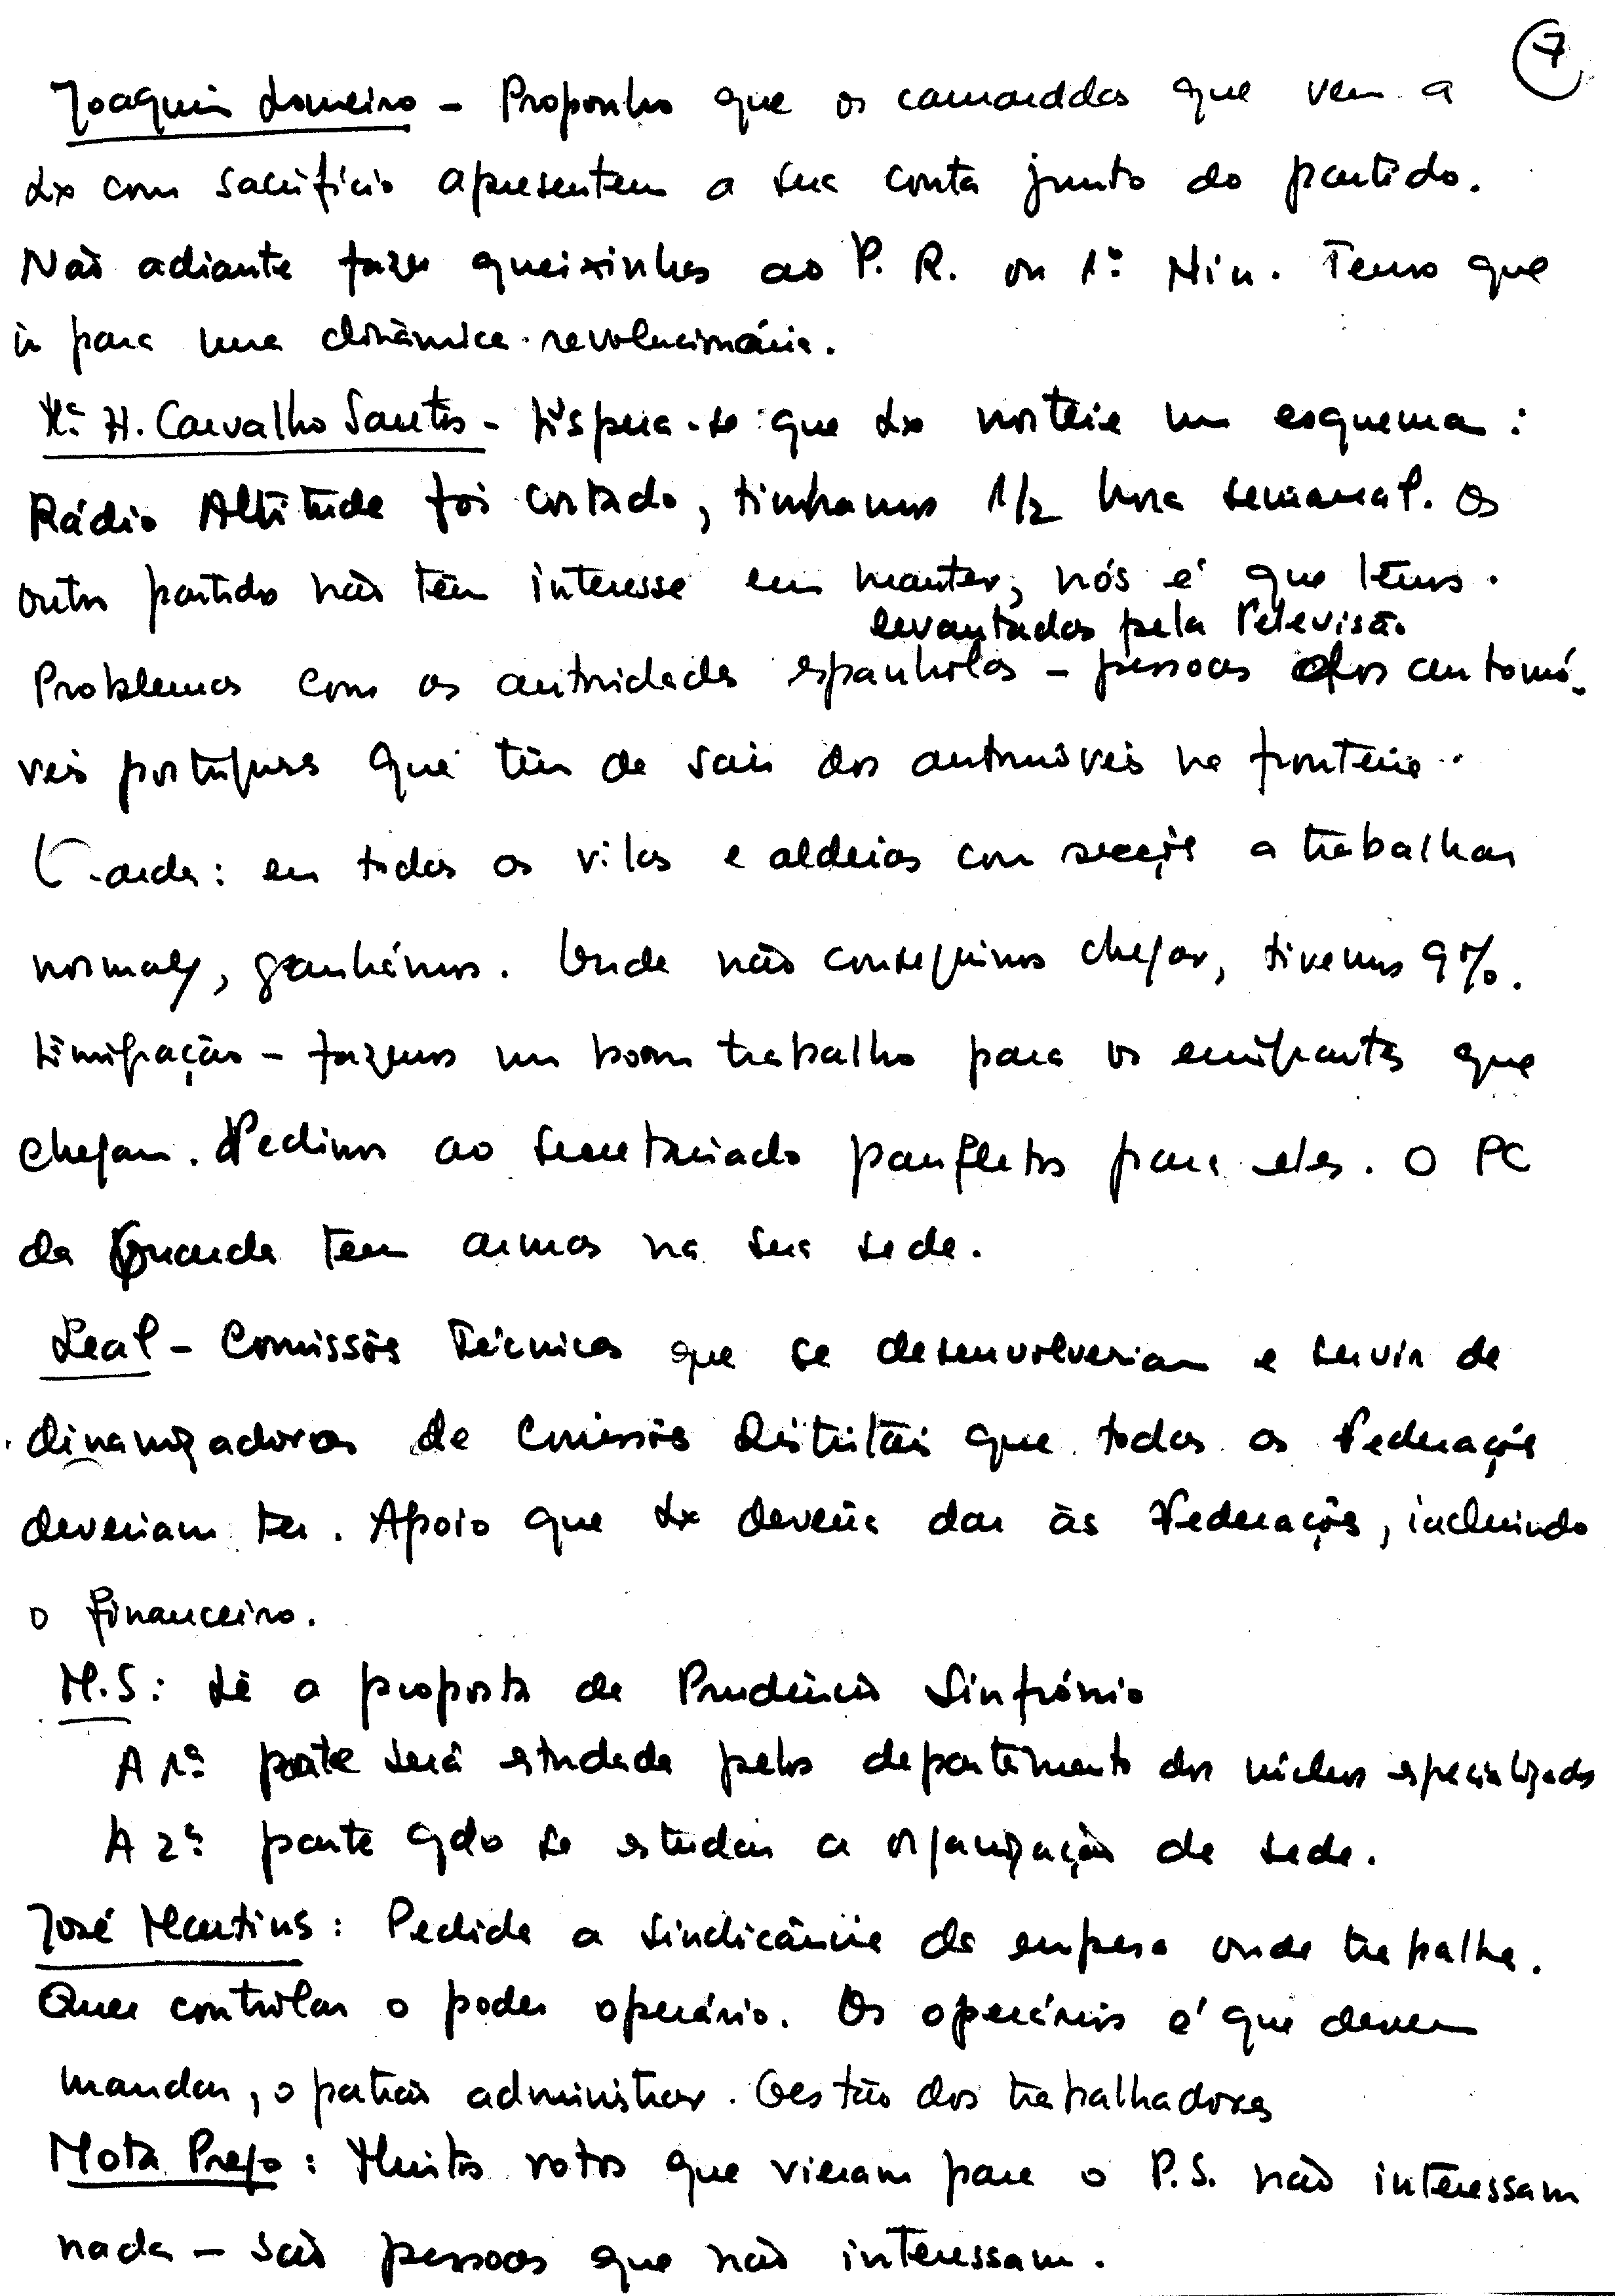 7
Joaquim Loureiro - Proponho que os camaradas que vem a
Lx com sacrifício apresentem a sua conta junto do partido.
Não adiante fazer queixinhas ao P. R. ou 1º Min. Temos que
ir para uma dinâmica revolucionária.
Mª H. Carvalho Santos - Espera-se que Lx norteie um esquema:
Rádio Altitude foi cortado, tinhamos 1/2 hora semanal. Os
outros partidos não têm interesse em manter, nós é que temos.
levantados pela Televisão.
Problemas com as autoridades espanholas - pessoas dos automó-
veis portugueses que têm de sair dos automóveis na fronteira.
Guarda: em todas as vilas e aldeias com secções a trabalhar
normalm/, ganhámos. Onde não conseguimos chegar, tivemos 9%.
Emigração - fazemos um bom trabalho para os emigrantes que
chegam. Pedimos ao secretariado panfletos para eles. O PC
da Guarda tem armas na sua sede.
Leal - Comissões Técnicas que se desenvolveriam e servir de
dinamizadoras de Comissões Distritais que todas as Federações
deveriam ter. Apoio que Lx deveria dar às Federações, incluindo
o financeiro.
M.S: Lê a proposta de Prudêncio Sinfrónio
A 1ª parte será estudada pelos departamento dos núcleos especializados
A 2ª parte qdo se estudar a organização da sede.
José Martins: Pedida a sindicância da empresa onde trabalha.
Quer controlar o poder operário. Os operários é que devem
mandar, o patrão administrar. Gestão dos trabalhadores
Mota Prego: Muitos votos que vieram para o P.S. não interessam
nada - são pessoas que não interessam.